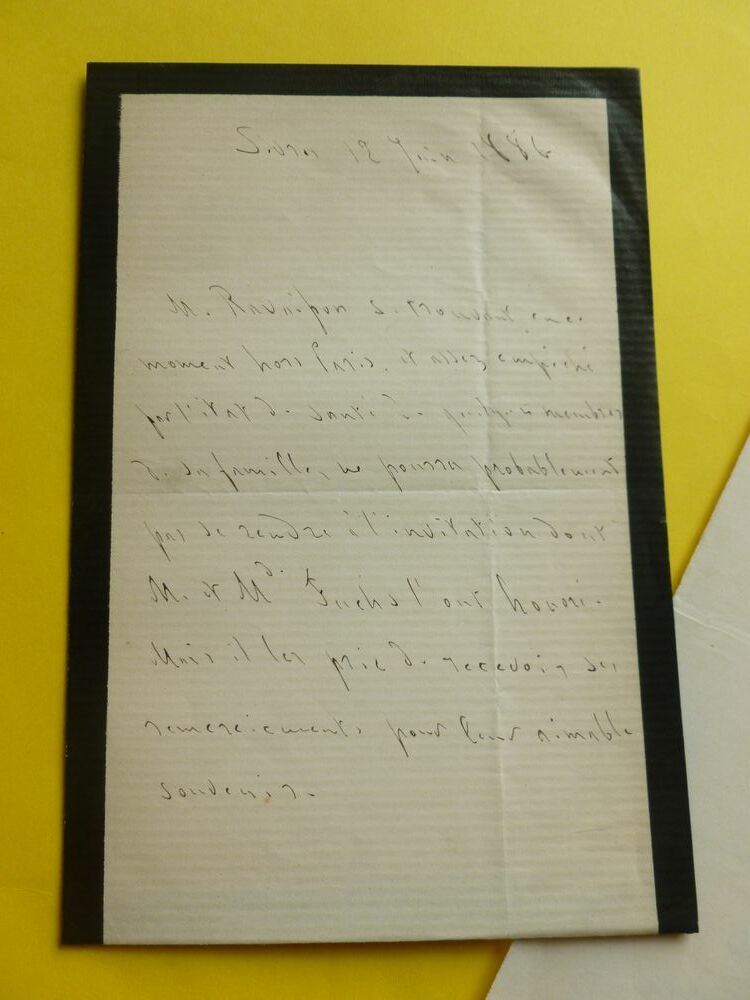 Sèvres 12 Juin 1886
M. Ravaisson se trouvant en ce
moment hors Paris, et assez empêché
par l'état de santé de quelques membres
de sa famille, ne pourra probablement
pas se rendre à l'invitation dont
M. et Mde Fuchs l'ont honoré.
Mais il les prie de recevoir ses
remerciements pour leur aimable
souvenir.